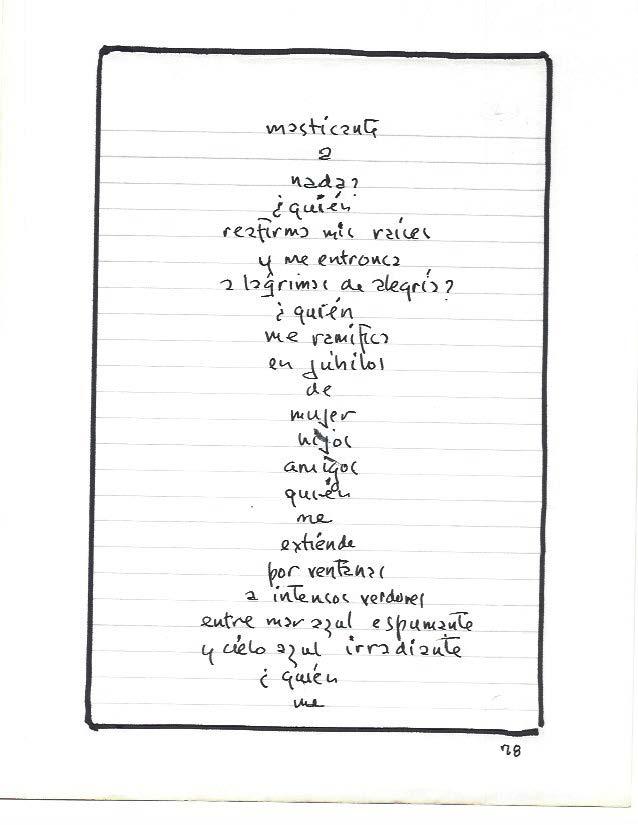 masticante
a
nada?
¿quién
reafirma mis raíces
y me entronca
a lágrimas de alegría?
¿quién
me ramifica
en júbilos
de
mujer
hijos
amigos
quién
me
extiende
por ventanas
a intensos verdores
entre mar azul espumante
y cielo azul irradiante
¿quién
me
78